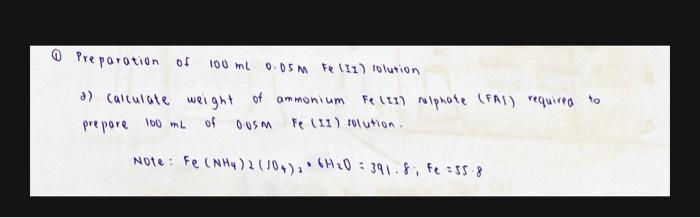 ① Preparation of 100 mL 0.05M Fe (II) solution
a) calculate weight of ammonium Fe (II) sulphate (FAS) required to
prepare 100 mL of 0.05M Fe (II) solution.
Note: Fe (NH4)2 (SO4)2 • 6H2O = 391.8; Fe = 55.8